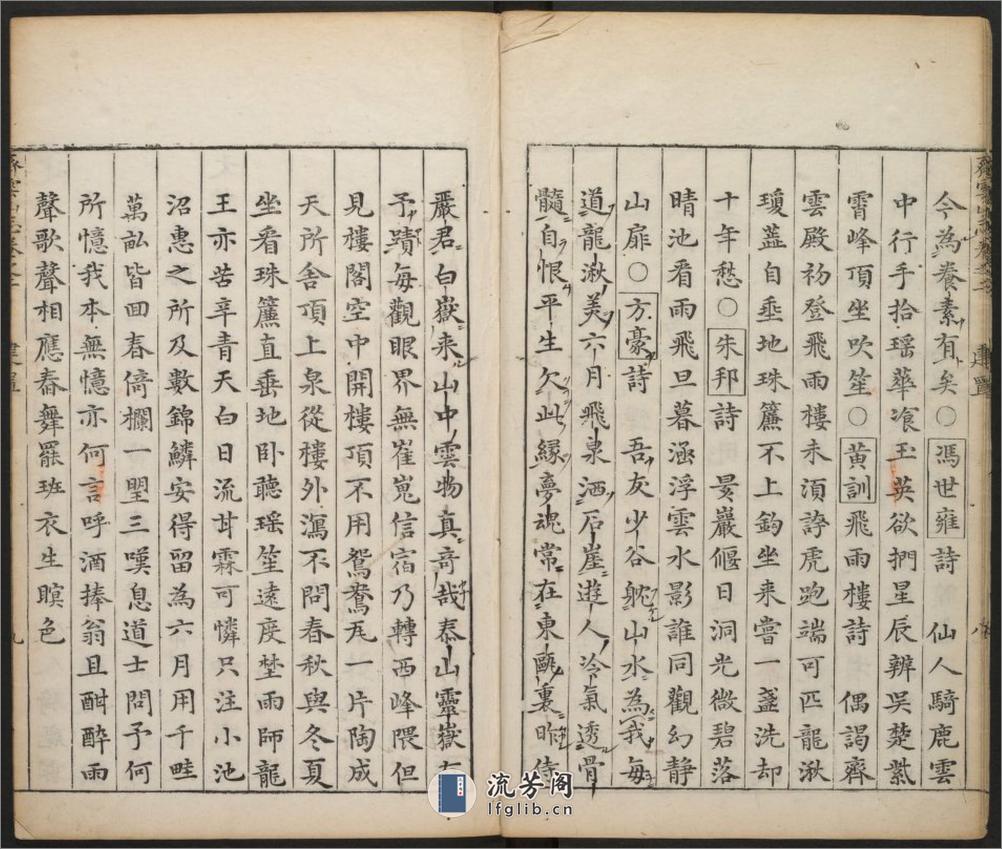 今為養素有矣○馮世雍詩　仙人騎鹿雲
中行手拾瑶華飡玉英欲捫星辰辨吳楚紫
霄峰頂坐吹笙○黄訓飛雨樓詩　偶謁齊
雲殿初登飛雨樓未湏誇虎跑端可匹龍湫
瓊蓋自垂地珠簾不上鈎坐来嘗一盞洗却
十年愁○朱邦詩　晏巖偃日洞光微碧落
晴池看雨飛旦暮涵浮雲水影誰同觀幻静
山扉○方豪詩　吾友少谷躭山水為我每
道龍湫美六月飛泉洒石崖遊人冷氣透骨
髓自恨平生欠此縁夢魂常在東甌裏昨侍
嚴君白嶽来山中雲物真奇哉泰山靈嶽
予躋每觀眼界無崔嵬信宿乃轉西峰隈但
見樓閣空中開樓頂不用鴛鴦瓦一片陶成
天所舍頂上泉從樓外瀉不問春秋與冬夏
坐看珠簾直垂地卧聽瑶笙遠度埜雨師龍
王亦苦辛青天白日流甘霖可憐只注小池
沼惠之所及數錦鱗安得留為六月用千畦
萬畆皆回春倚欄一朢三嘆息道士問予何
所憶我本無憶亦何言呼酒捧翁且酣醉雨
聲歌聲相應舂舞罷班衣生暝色
齊雲山志卷之二　建置　八
建置　九
流芳阁
lfglib.cn